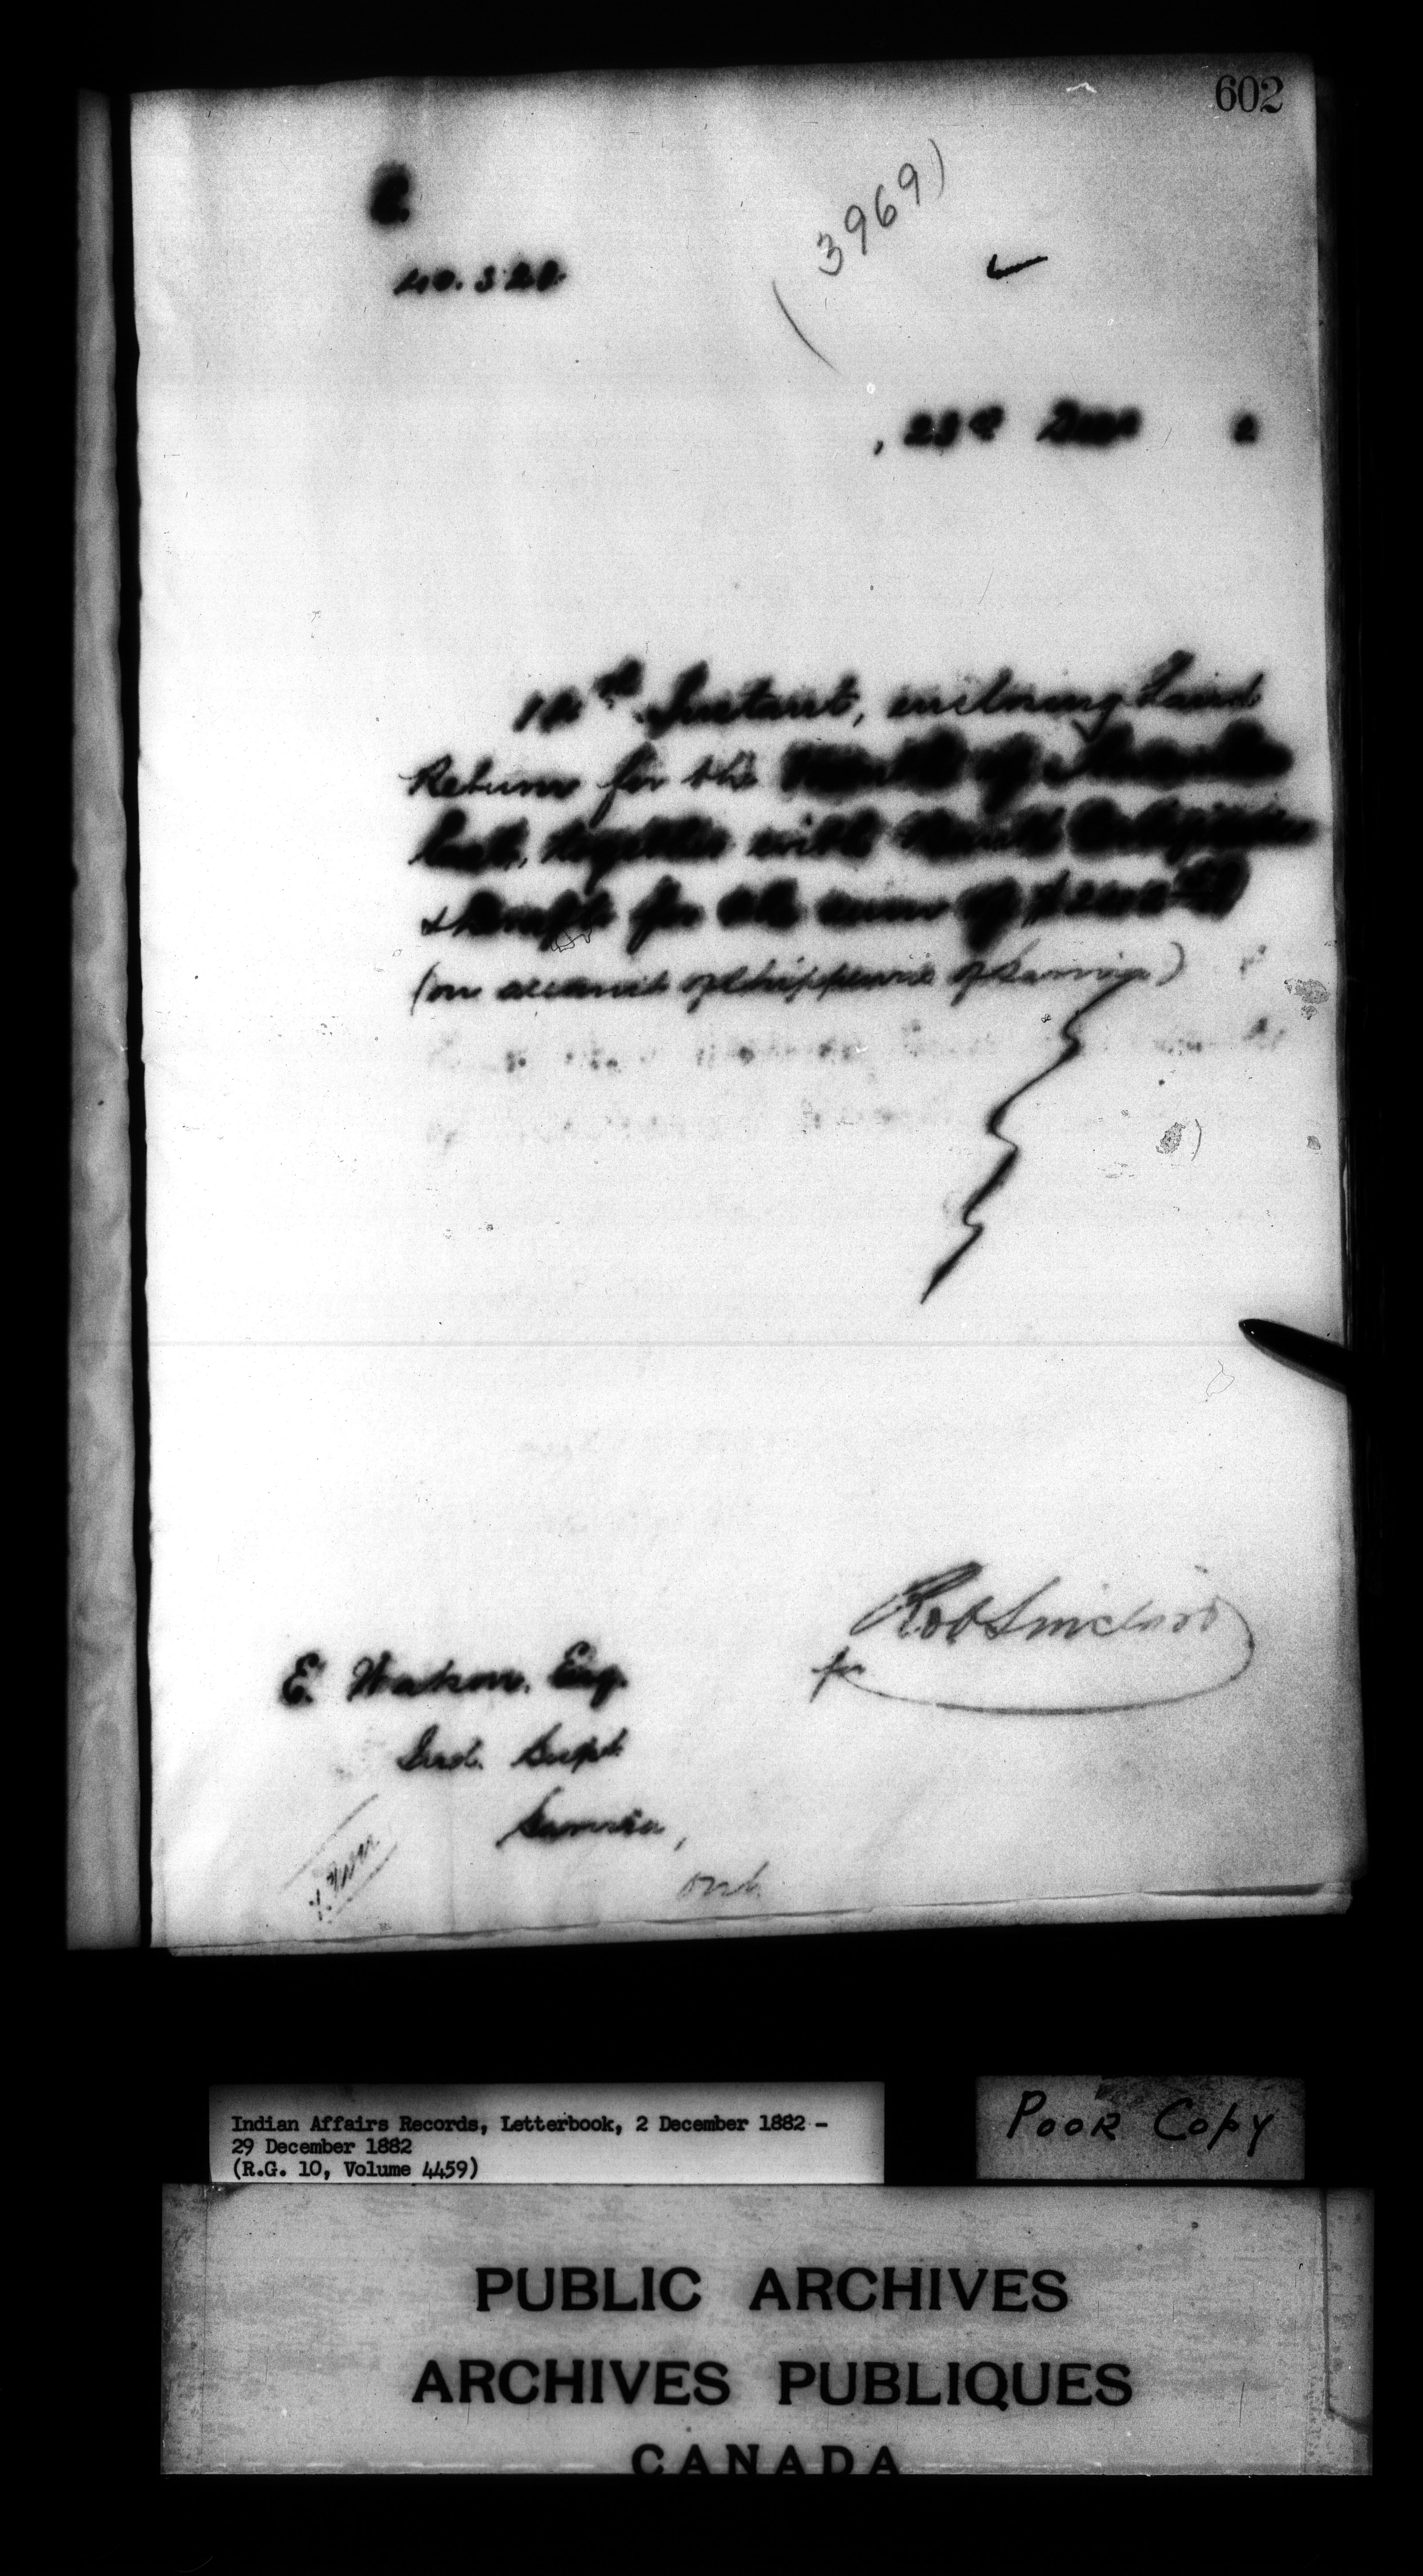 602
(3969)
40.320
, 23rd Decr 2
Instant, enclosing Land
Return for the Month of November
last, together with
& Draft for the sum of
(on account of Chippewas of Sarnia)
Rob Sinclair
for
E. Watson. Esq.
Ind. Supt
Sarnia,
Ont.
Indian Affairs Records, Letterbook, 2 December 1882 -
29 December 1882
(R.G. 10, Volume 4459)
POOR COPY
PUBLIC ARCHIVES
ARCHIVES PUBLIQUES
CANADA